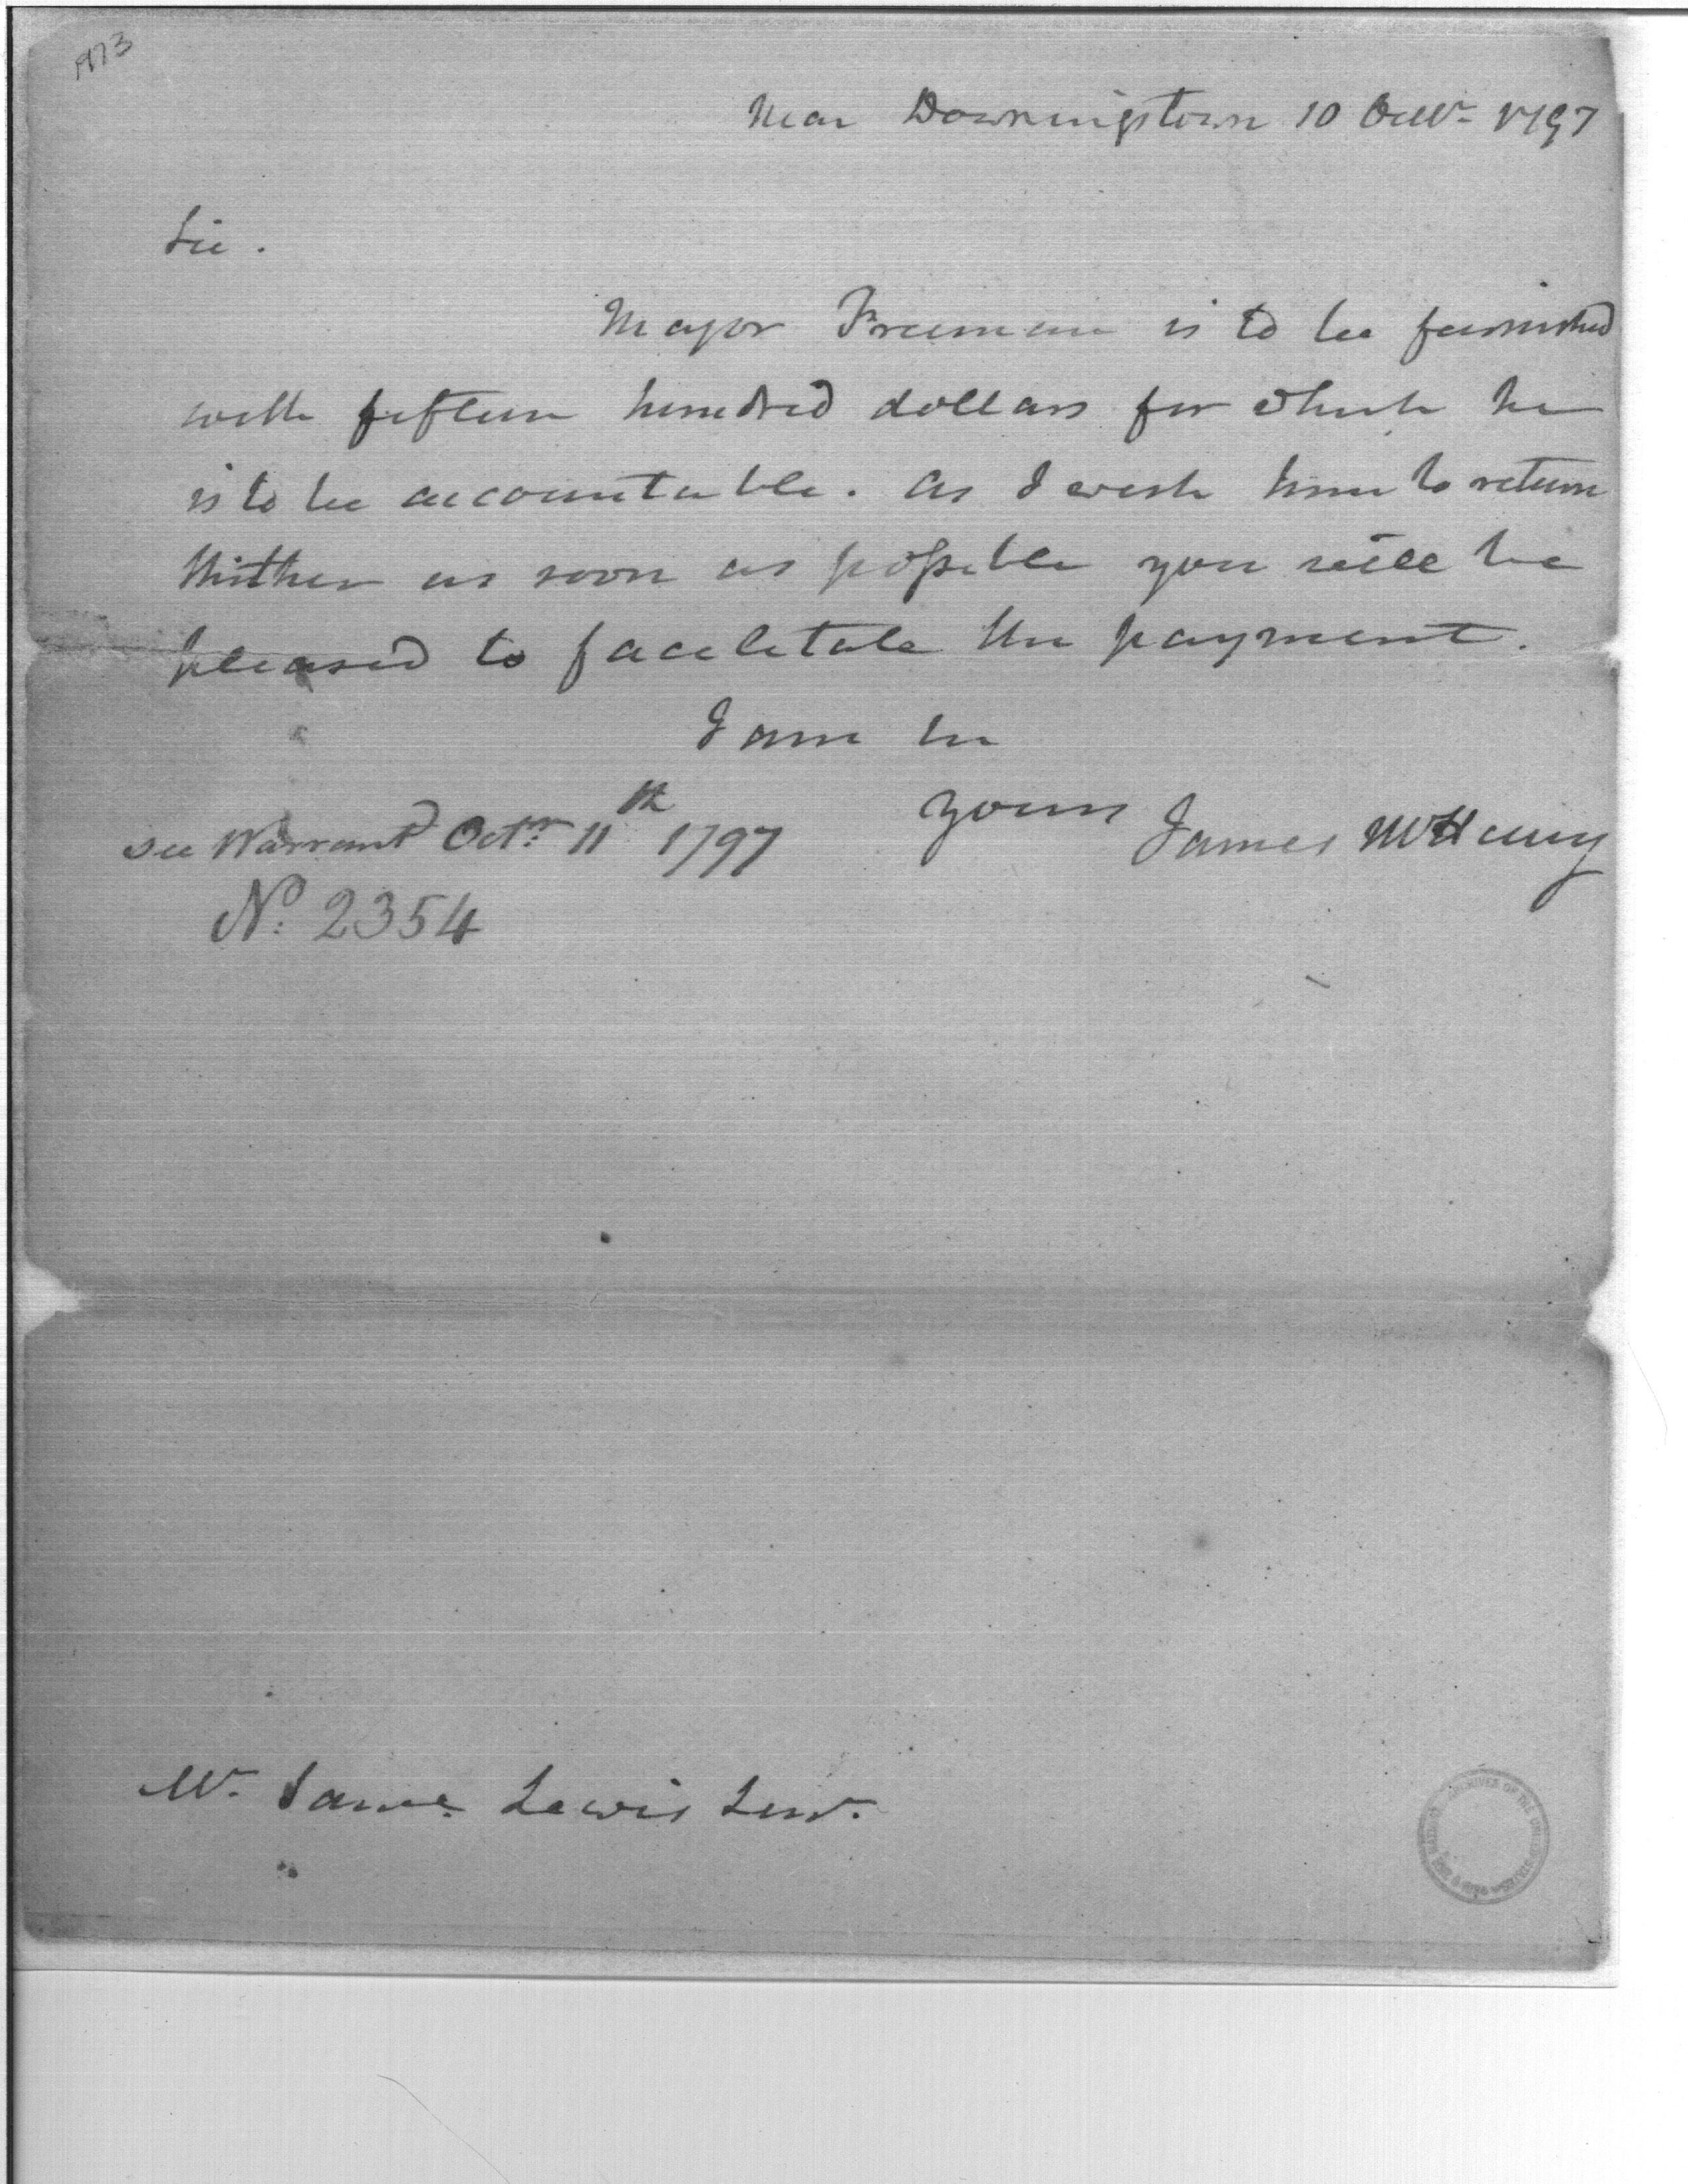 1973
Near Downingstown 10 Octr. 1797
Sir.
Major Freeman is to be furnished
with fifteen hundred dollars for which he
is to be accountable. As I wish him to return
thither as soon as possible you will be
pleased to facilitate the payment.
I am
yours James McHenry
see Warrant Octr. 11th 1797
No. 2354
Mr. Lewis
ARCHIVES OF THE UNITED STATES